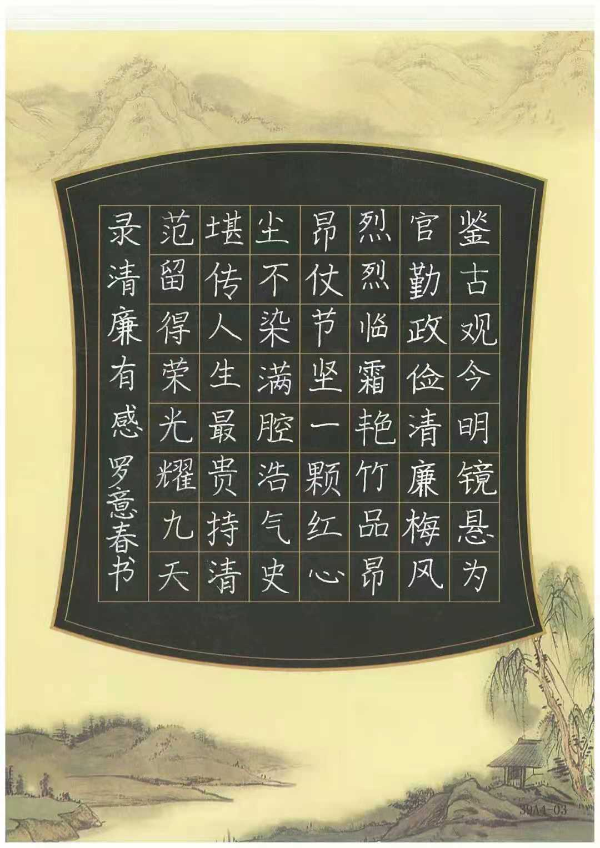 鉴古观今明镜悬为
官勤政俭清廉梅风
烈烈临霜艳竹品昂
昂仗节坚一颗红心
尘不染满腔浩气史
堪传人生最贵持清
范留得荣光耀九天
录清廉有感罗意春书
39A4-03